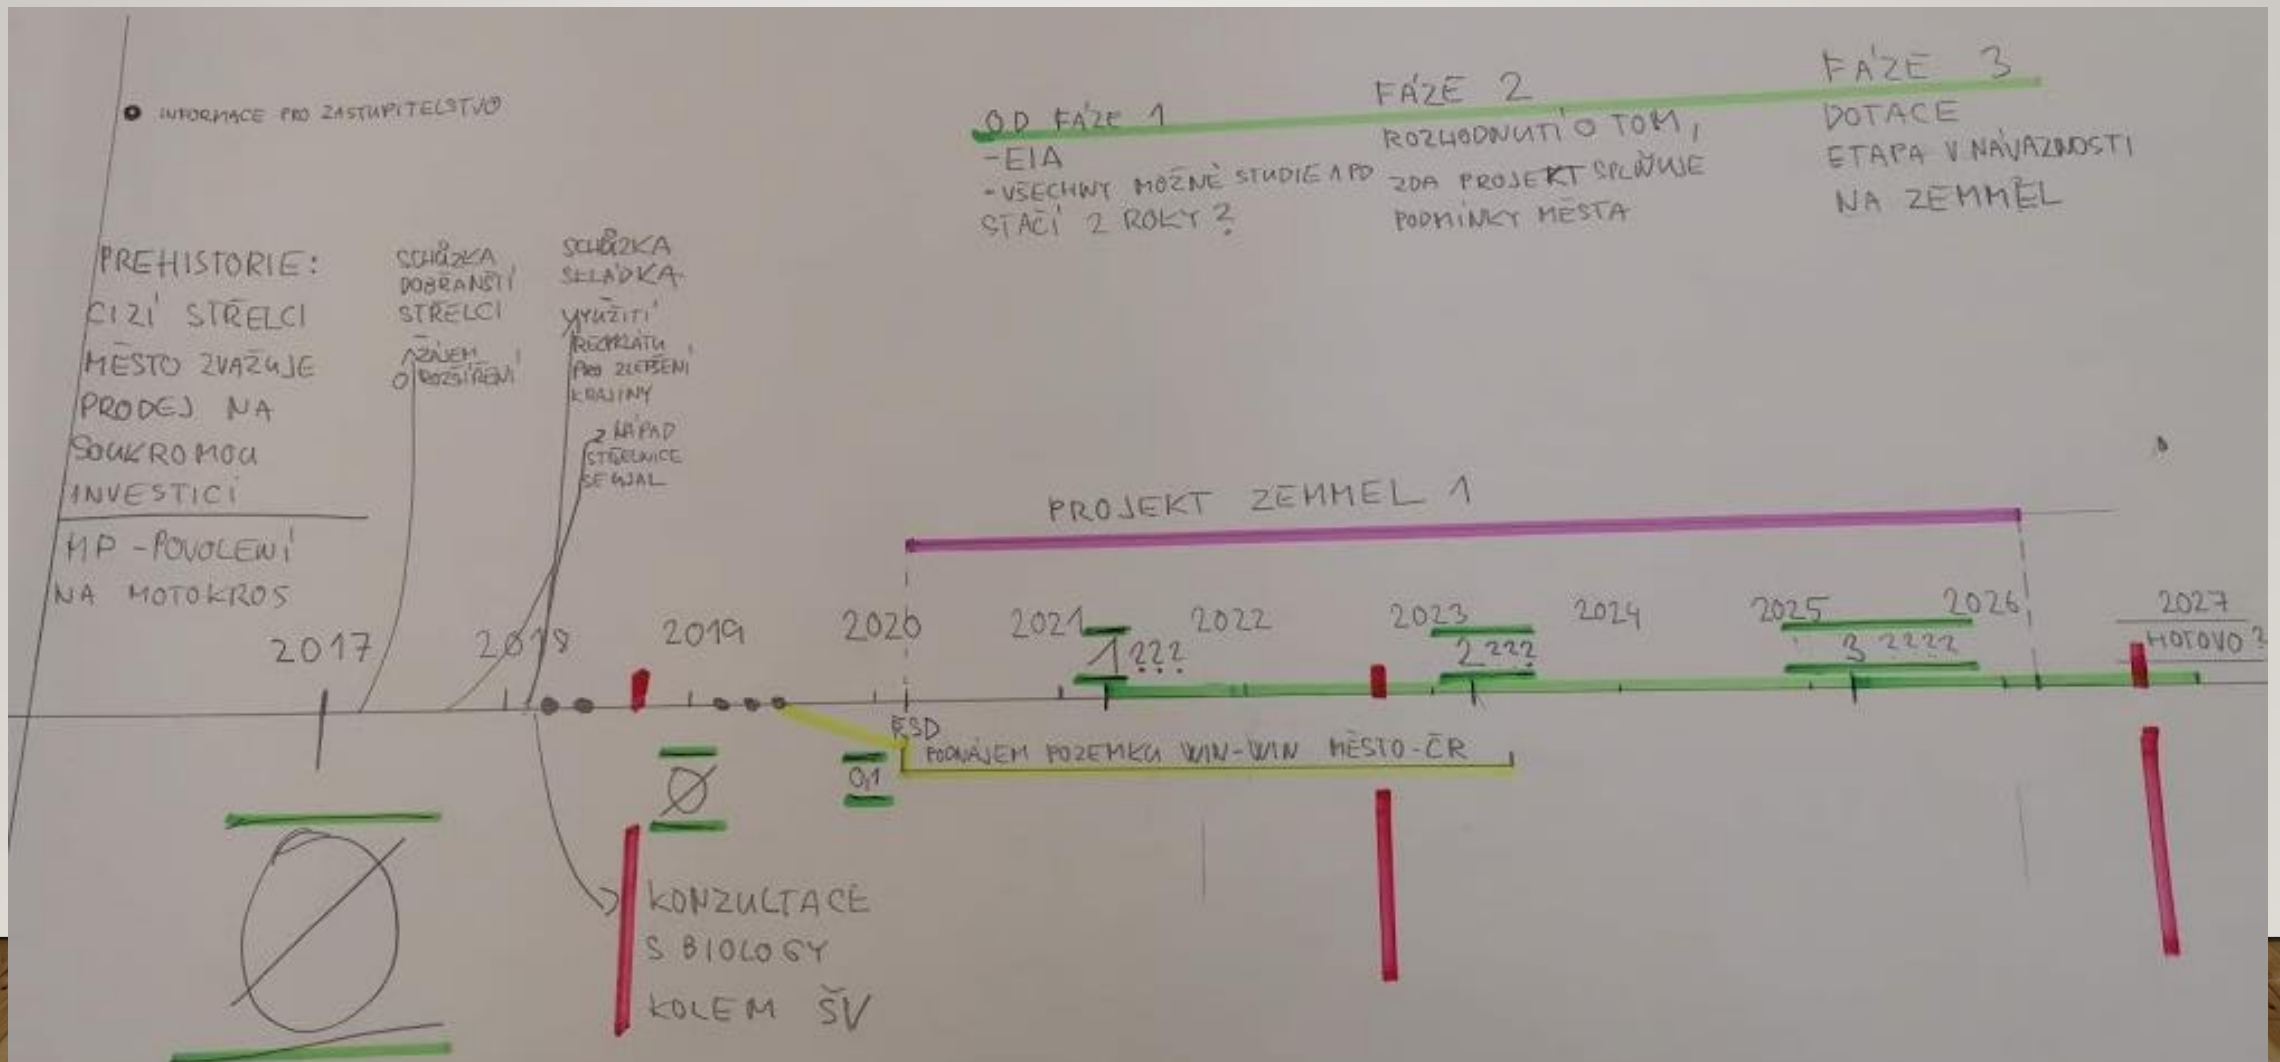 INFORMACE PRO ZASTUPITELSTVO
OD FÁZE 1
-EIA
-VŠECHNY MOŽNÉ STUDIE A PD
STAČÍ 2 ROKY?
FÁZE 2
ROZHODNUTÍ O TOM,
ZDA PROJEKT SPLŇUJE
PODMÍNKY MĚSTA
FÁZE 3
DOTACE
ETAPA V NÁVAZNOSTI
NA ZEMMEL
PREHISTORIE:
CIZÍ STŘELCI
MĚSTO ZVAŽUJE
PRODEJ NA
SOUKROMOU
INVESTICI
MP - POVOLENÍ
NA MOTOKROS
SCHŮZKA
DOBŘANSTÍ
STŘELCI
ZÁJEM
O ROZŠÍŘENÍ
SCHŮZKA
SKLÁDKA
VYUŽITÍ
REKPLÁTU
PRO ZLEPŠENÍ
KRAJINY
NÁPAD
STŘELNICE
SE UJAL
PROJEKT ZEMMEL 1
2017
2018
2019
2020
2021
2022
2023
2024
2025
2026
2027
1???
2???
3????
HOTOVO?
PODNÁJEM POZEMKU WIN-WIN MĚSTO-ČR
Ø
0,1
Ø
KONZULTACE
S BIOLOGY
KOLEM ŠV